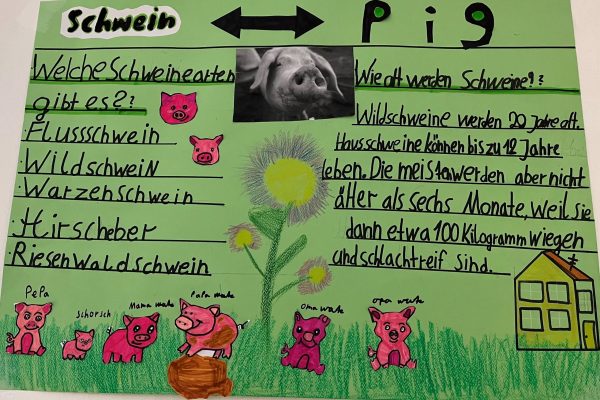 Schwein
Pig
Welche Schweinearten
gibt es??
· Flussschwein
· Wildschwein
· Warzenschwein
· Hirscheber
· Riesenwaldschwein
Wie alt werden Schweine??
Wildschweine werden 20 Jahre alt.
Hausschweine können bis zu 12 Jahre
leben. Die meisten werden aber nicht
älter als sechs Monate, weil sie
dann etwa 100 Kilogramm wiegen
und schlachtreif sind.
PePa
Schorsch
Mama wutz
Papa wutz
Oma wutz
opa wutz